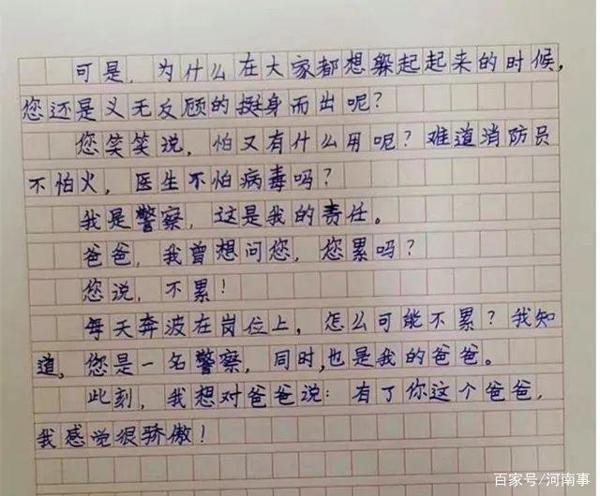 可是，为什么在大家都想躲起起来的时候，
您还是义无反顾的挺身而出呢？
您笑笑说，怕又有什么用呢？难道消防员
不怕火，医生不怕病毒吗？
我是警察，这是我的责任。
爸爸，我曾想问您，您累吗？
您说，不累！
每天奔波在岗位上，怎么可能不累？我知
道，您是一名警察，同时，也是我的爸爸。
此刻，我想对爸爸说：有了你这个爸爸，
我感觉很骄傲！
百家号/河南事